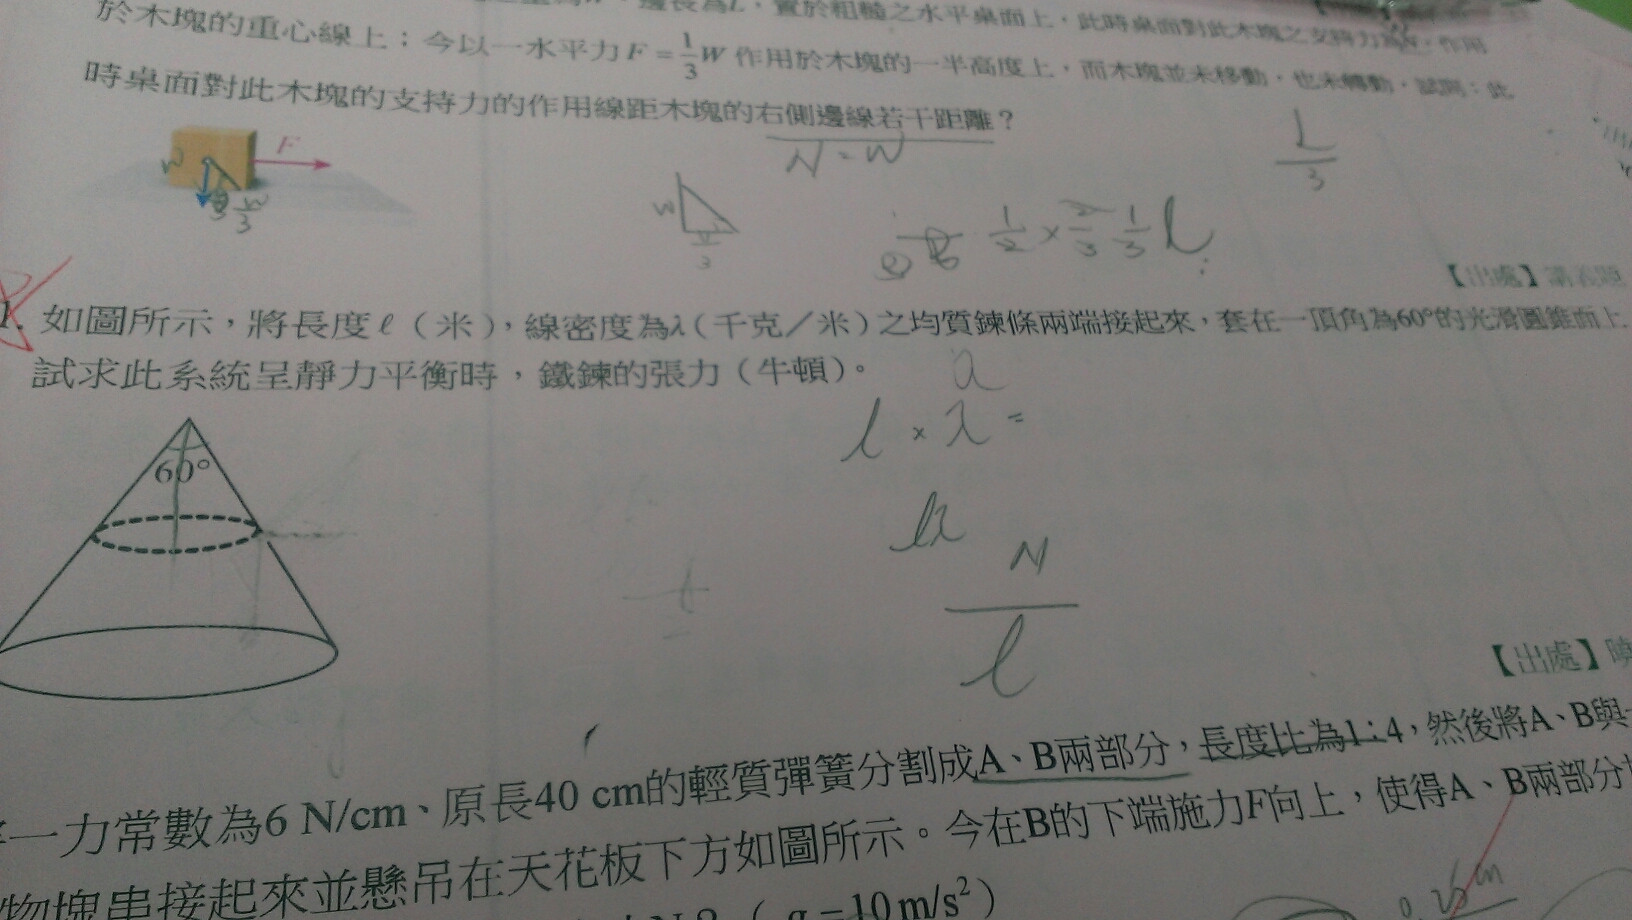 邊長為L,置於粗糙之水平桌面上,此時桌面對此木塊之支持力為N,作用
於木塊的重心線上;今以一水平力F=1/3W作用於木塊的一半高度上,而木塊並未移動,也未轉動,試問:此
時桌面對此木塊的支持力的作用線距木塊的右側邊線若干距離?
N=W
L/3
W
F
W/3
W
3
1/2×
1/3 l
【出處】講義題
1. 如圖所示,將長度ℓ(米),線密度為λ(千克/米)之均質鍊條兩端接起來,套在一頂角為60°的光滑圓錐面上
試求此系統呈靜力平衡時,鐵鍊的張力(牛頓)。
a
l×λ=
60°
lλ
N/l
【出處】
一力常數為6 N/cm、原長40 cm的輕質彈簧分割成A、B兩部分,長度比為1:4,然後將A、B與
物塊串接起來並懸吊在天花板下方如圖所示。今在B的下端施力F向上,使得A、B兩部分
(g=10m/s²)